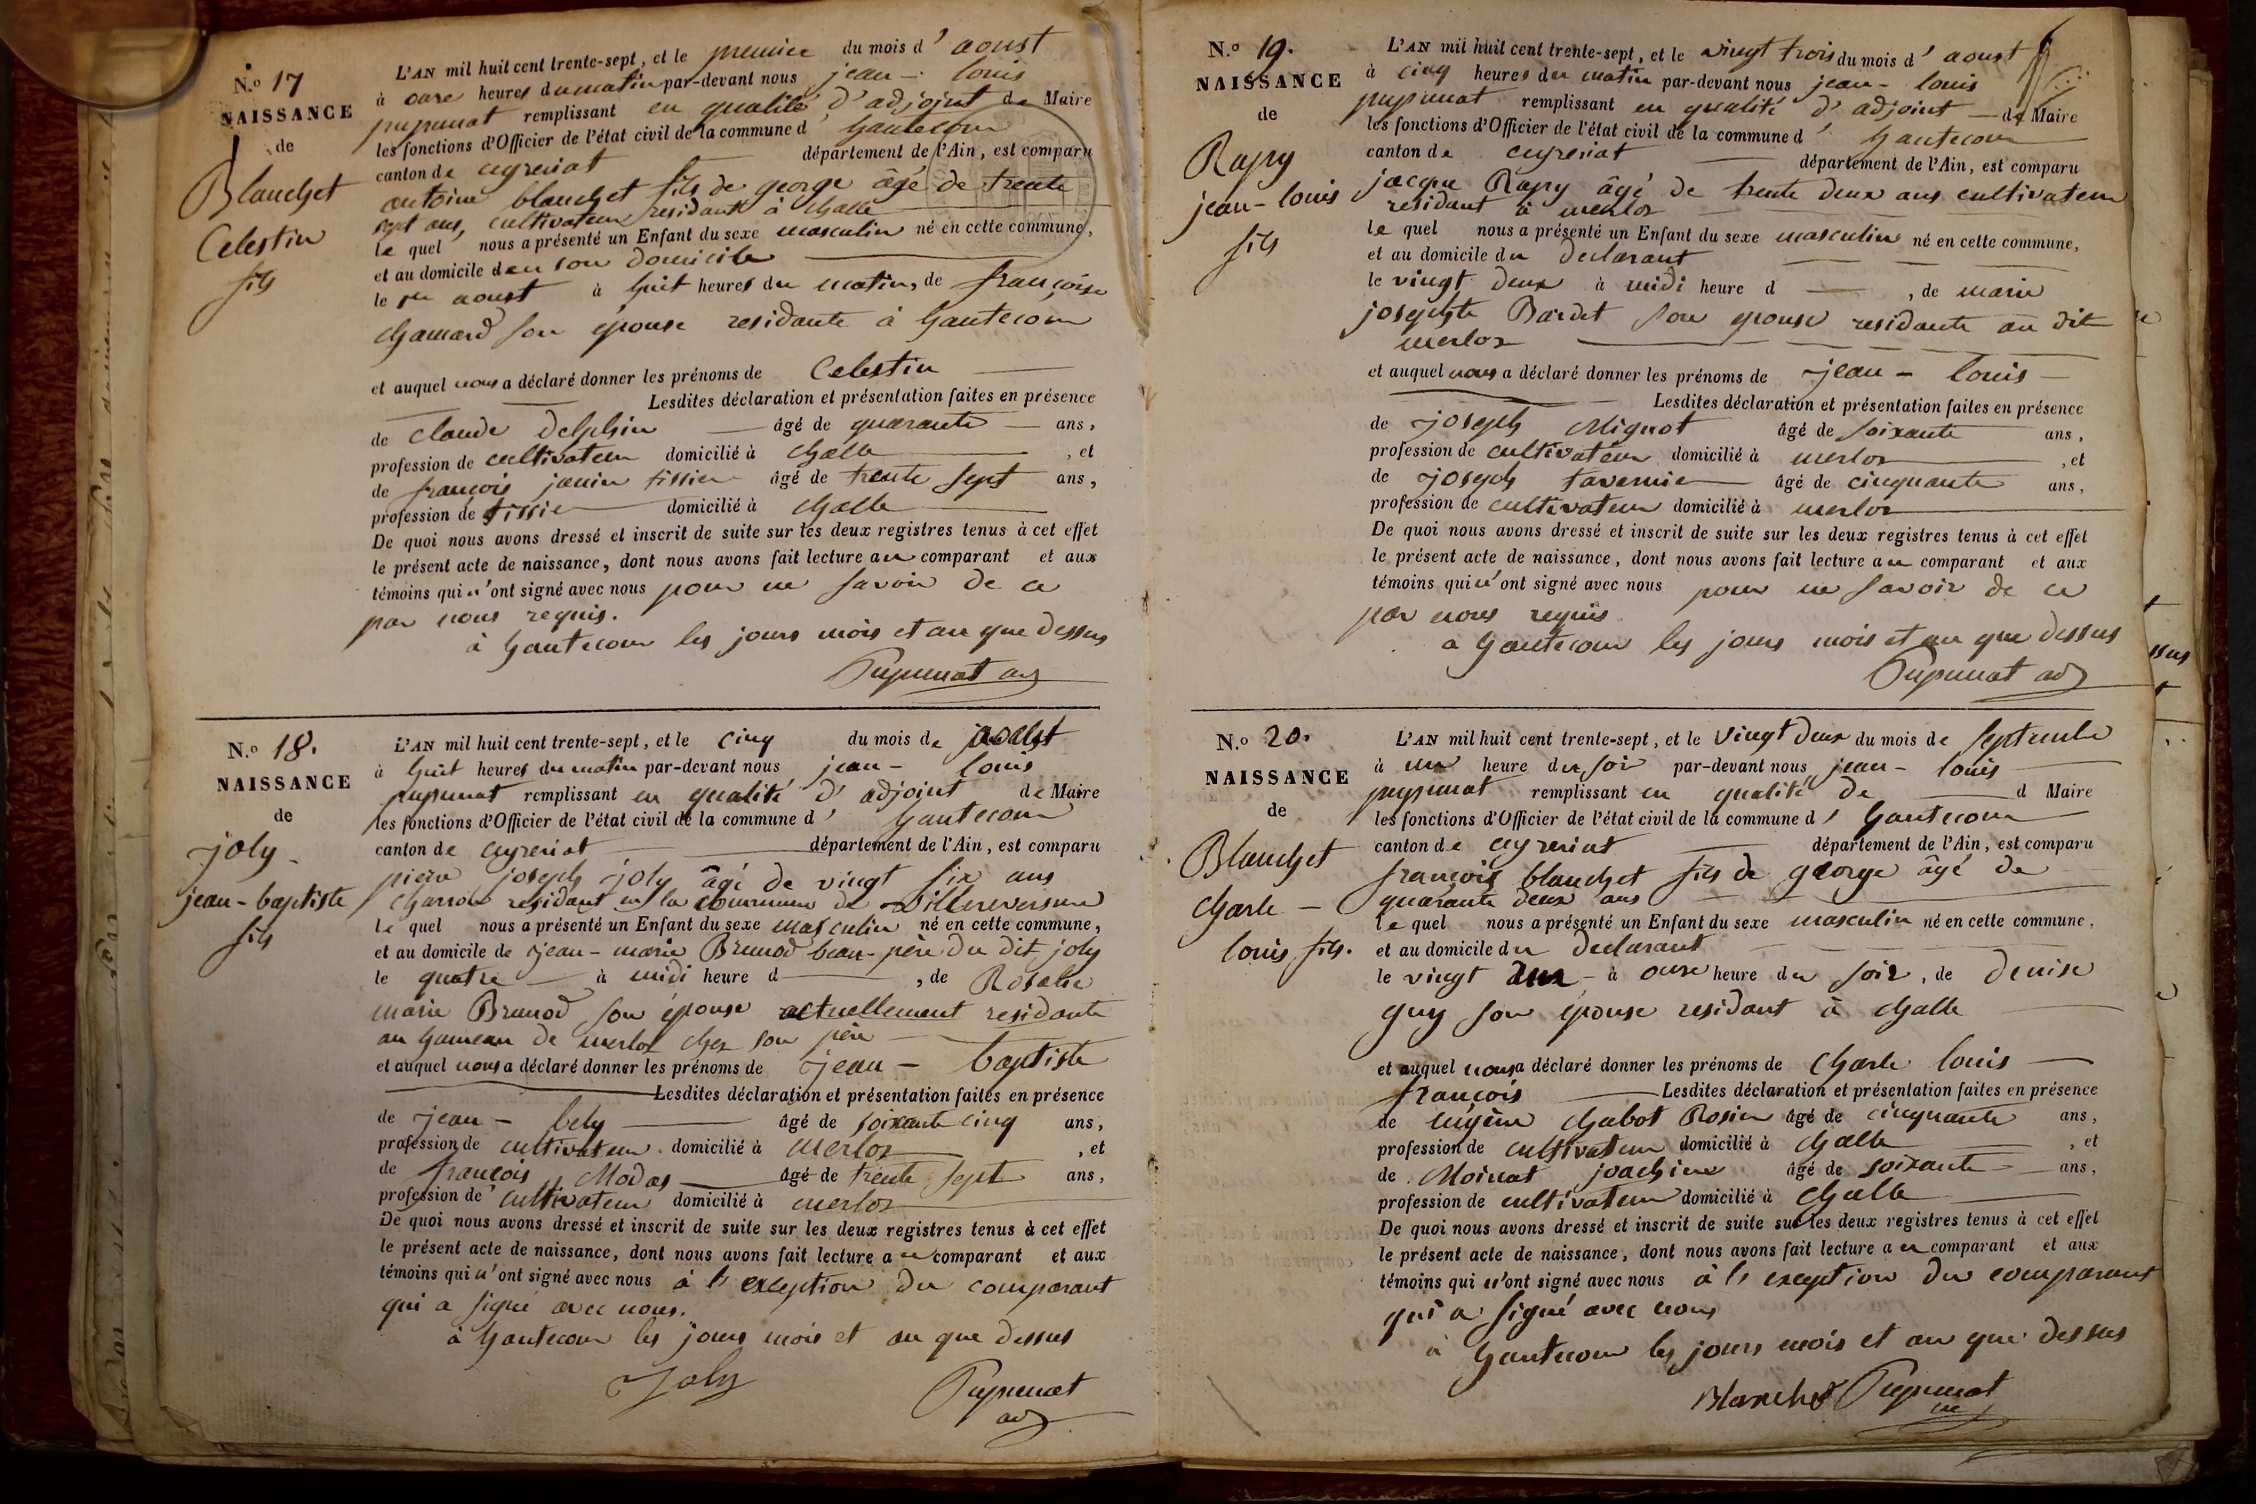 N.º 17
NAISSANCE
de
Blanchet
Celestin
fils
L'AN mil huit cent trente-sept, et le premier du mois d'aoust
à onze heures du matin par-devant nous jean-louis
pupunat remplissant en qualité d'adjoint de Maire
les fonctions d'Officier de l'état civil de la commune d'hautecour
canton de ceyzeriat département de l'Ain, est comparu
antoine blanchet fils de george âgé de trente
sept ans, cultivateur residant à challe
le quel nous a présenté un Enfant du sexe masculin né en cette commune,
et au domicile d en son domicile
le 1er aoust à huit heures du matin, de françoise
chamard son épouse residante à hautecour
et auquel nous a déclaré donner les prénoms de Celestin
Lesdites déclaration et présentation faites en présence
de claude delphin âgé de quarante ans,
profession de cultivateur domicilié à challe, et
de françois janin tissier âgé de trente sept ans,
profession de tissier domicilié à challe
De quoi nous avons dressé et inscrit de suite sur les deux registres tenus à cet effet
le présent acte de naissance, dont nous avons fait lecture au comparant et aux
témoins qui n'ont signé avec nous pour ne savoir de ce
par nous requis.
à hautecour les jours mois et an que dessus
Pupunat adj
N.º 18.
NAISSANCE
de
joly
jean-baptiste
fils
L'AN mil huit cent trente-sept, et le cinq du mois de
à huit heures du matin par-devant nous jean-louis
pupunat remplissant en qualité d'adjoint de Maire
les fonctions d'Officier de l'état civil de la commune d'hautecour
canton de ceyzeriat département de l'Ain, est comparu
pierre joseph joly âgé de vingt six ans
charron residant en la commune de villereversure
le quel nous a présenté un Enfant du sexe masculin né en cette commune,
et au domicile de jean-marie Brunod beau-père du dit joly
le quatre à midi heure d , de Rosalie
marie Brunod son épouse actuellement residante
au hameau de merloz chez son père
et auquel nous a déclaré donner les prénoms de jean-baptiste
Lesdites déclaration et présentation faites en présence
de jean-bely âgé de soixante cinq ans,
profession de cultivateur domicilié à merloz, et
de françois Modas âgé de trente sept ans,
profession de cultivateur domicilié à merloz
De quoi nous avons dressé et inscrit de suite sur les deux registres tenus à cet effet
le présent acte de naissance, dont nous avons fait lecture au comparant et aux
témoins qui n'ont signé avec nous à l'exception du comparant
qui a signé avec nous.
à hautecour les jours mois et an que dessus
Joly Pupunat
adj
N.º 19.
NAISSANCE
de
Rapy
jean-louis
fils
L'AN mil huit cent trente-sept, et le vingt trois du mois d'aoust
à cinq heures du matin par-devant nous jean-louis
pupunat remplissant en qualité d'adjoint de Maire
les fonctions d'Officier de l'état civil de la commune d'hautecour
canton de ceyzeriat département de l'Ain, est comparu
jacque Rapy âgé de trente deux ans cultivateur
residant à merloz
le quel nous a présenté un Enfant du sexe masculin né en cette commune,
et au domicile du declarant
le vingt deux à midi heure d , de marie
josephte Bardet son epouse residante au dit
merloz
et auquel nous a déclaré donner les prénoms de jean-louis
Lesdites déclaration et présentation faites en présence
de joseph Mignot âgé de soixante ans,
profession de cultivateur domicilié à merloz, et
de joseph tavernier âgé de cinquante ans,
profession de cultivateur domicilié à merloz
De quoi nous avons dressé et inscrit de suite sur les deux registres tenus à cet effet
le présent acte de naissance, dont nous avons fait lecture au comparant et aux
témoins qui n'ont signé avec nous pour ne savoir de ce
par nous requis
à hautecour les jours mois et an que dessus
Pupunat adj
N.º 20.
NAISSANCE
de
Blanchet
charle-
louis fils.
L'AN mil huit cent trente-sept, et le vingt deux du mois de septembre
à une heure du soir par-devant nous jean-louis
pupunat remplissant en qualité de d Maire
les fonctions d'Officier de l'état civil de la commune d'hautecour
canton de ceyzeriat département de l'Ain, est comparu
françois blanchet fils de george âgé de
quarante deux ans
le quel nous a présenté un Enfant du sexe masculin né en cette commune,
et au domicile du declarant
le vingt à onze heure du soir, de denise
guy son épouse residant à challe
et auquel nous a déclaré donner les prénoms de charle louis
françois Lesdites déclaration et présentation faites en présence
de eugène chabot Rosier âgé de cinquante ans,
profession de cultivateur domicilié à challe, et
de Moinat joachim âgé de soixante ans,
profession de cultivateur domicilié à challe
De quoi nous avons dressé et inscrit de suite sur les deux registres tenus à cet effet
le présent acte de naissance, dont nous avons fait lecture au comparant et aux
témoins qui n'ont signé avec nous à l'exception du comparant
qui a signé avec nous
à hautecour les jours mois et an que dessus
Blanchet Pupunat